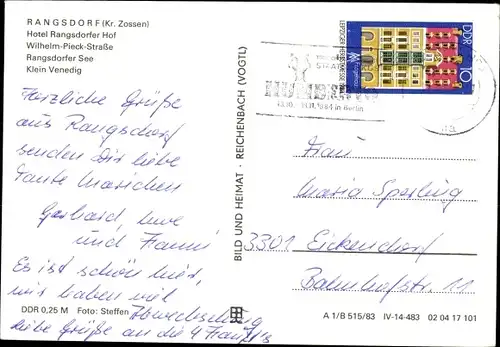 RANGSDORF (Kr. Zossen)
Hotel Rangsdorfer Hof
Wilhelm-Pieck-Straße
Rangsdorfer See
Klein Venedig
Herzliche Grüße
aus Rangsdorf
senden Dir liebe
Tante Mariechen
Gerhard Uwe
und Franni
Es ist schön hier,
wir haben viel
Abwechslung
liebe Grüße an die 4
DDR 0,25 M Foto: Steffen
BILD UND HEIMAT · REICHENBACH (VOGTL)
DDR
10
1984 in Berlin
Frau
Maria Sperling
3301 Eickendorf
Bahnhofstr. 11
A 1/B 515/83 IV-14-483 02 04 17 101